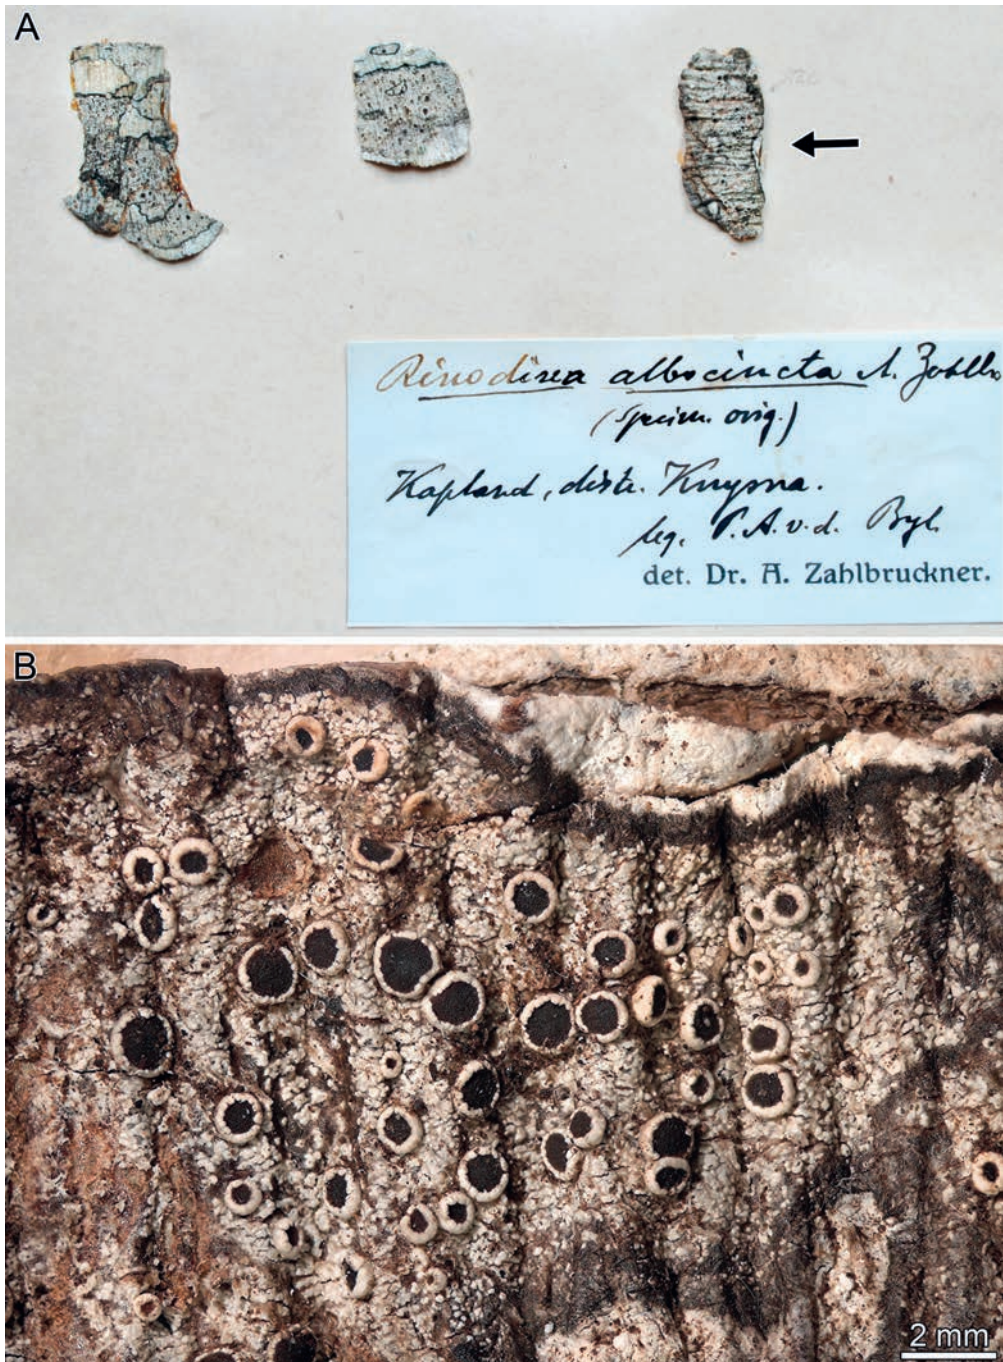 A
Rinodina albocincta A. Zahlbr
(specim. orig.)
Kapland, distr. Knysna.
leg. P. A. v. d. Byl.
det. Dr. A. Zahlbruckner.
B
2 mm